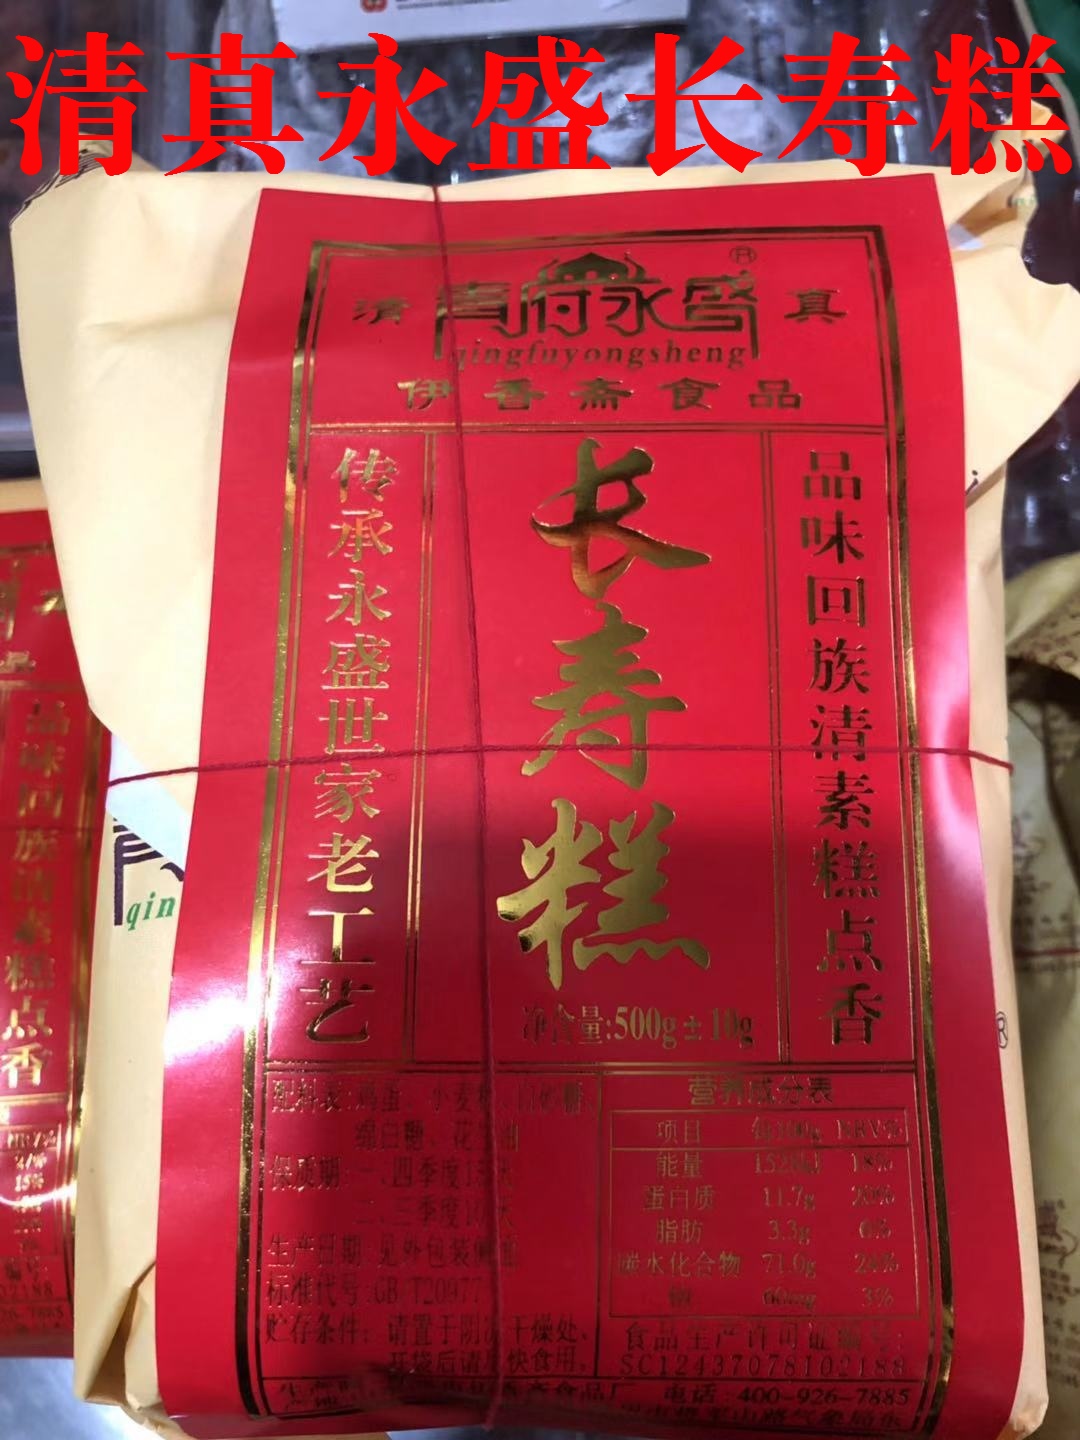 清真永盛长寿糕
清 青府永盛® 真
qingfuyongsheng
伊香斋食品
传承永盛世家老工艺
长寿糕
品味回族清素糕点香
净含量:500g±10g
配料表:鸡蛋、小麦粉、白砂糖、
绵白糖、花 油
保质期:一、四季度15天
二、三季度10天
生产日期:见外包装侧面
标准代号:GB/T20977
贮存条件:请置于阴凉干燥处、
开袋后请尽快食用。
营养成分表
项目 每100g NRV%
能量 1528kJ 18%
蛋白质 11.7g 20%
脂肪 3.3g 6%
碳水化合物 71.0g 24%
钠 60mg 3%
食品生产许可证编号:
SC12437078102188
香斋食品厂 电话:400-926-7885
山路气象局东
品味回族清素糕点香
15%
02188
7885
qin
®